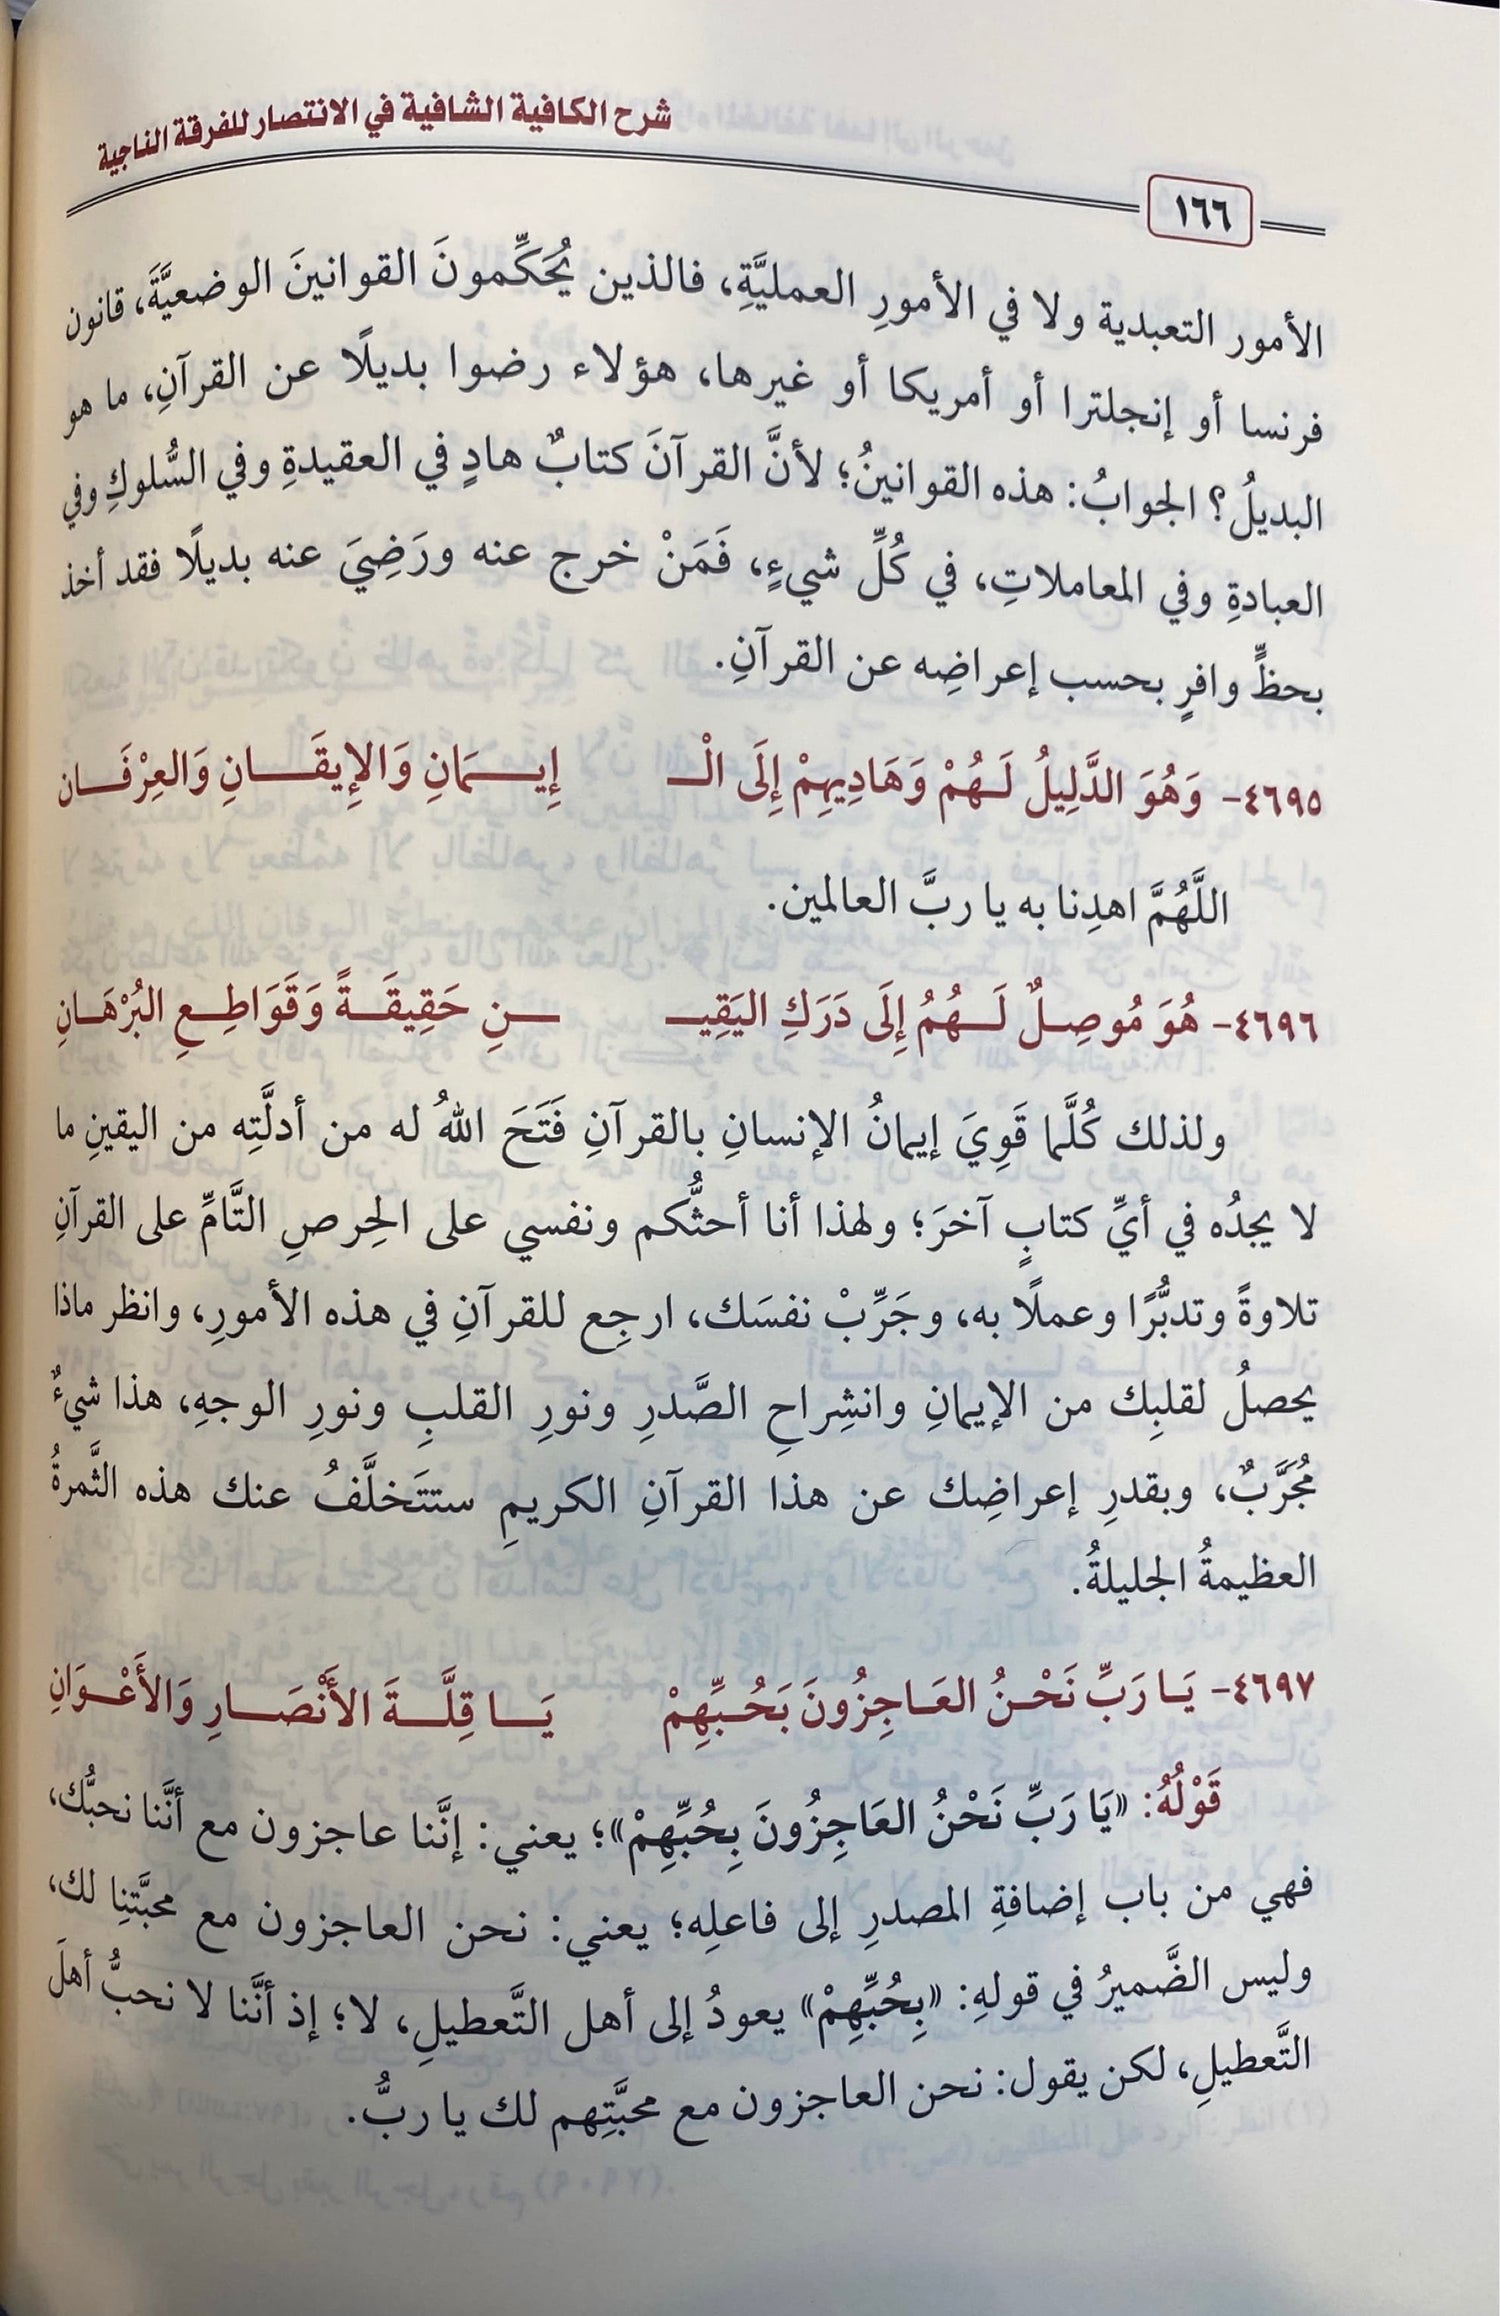 شرح الكافية الشافية في الانتصار للفرقة الناجية
١٦٦
الأمور التعبدية ولا في الأمورِ العمليَّةِ، فالذين يُحَكِّمونَ القوانينَ الوضعيَّةَ، قانون
فرنسا أو إنجلترا أو أمريكا أو غيرها، هؤلاء رضوا بديلًا عن القرآنِ، ما هو
البديلُ؟ الجوابُ: هذه القوانينُ؛ لأنَّ القرآنَ كتابٌ هادٍ في العقيدةِ وفي السُّلوكِ وفي
العبادةِ وفي المعاملاتِ، في كُلِّ شيءٍ، فَمَنْ خرج عنه ورَضِيَ عنه بديلًا فقد أخذ
بحظٍّ وافرٍ بحسب إعراضِه عن القرآنِ.
٤٦٩٥- وَهُوَ الدَّلِيلُ لَـهُمْ وَهَادِيهِمْ إِلَى الْـ إِيـــمَانِ وَالإِيقَـــانِ وَالعِرْفَـــان
اللَّهُمَّ اهدِنا به يا ربَّ العالمين.
٤٦٩٦- هُوَ مُوصِـلٌ لَـهُمُ إِلَى دَرَكِ اليَقِيـ ـــنِ حَقِيقَـةً وَقَوَاطِـعِ البُرْهَـانِ
ولذلك كُلَّما قَوِيَ إيمانُ الإنسانِ بالقرآنِ فَتَحَ اللهُ له من أدلَّتِه من اليقينِ ما
لا يجدُه في أيِّ كتابٍ آخرَ؛ ولهذا أنا أحثُّكم ونفسي على الحِرصِ التَّامِّ على القرآنِ
تلاوةً وتدبُّرًا وعملًا به، وجَرِّبْ نفسَك، ارجِع للقرآنِ في هذه الأمورِ، وانظر ماذا
يحصلُ لقلبِك من الإيمانِ وانشِراحِ الصَّدرِ ونورِ القلبِ ونورِ الوجهِ، هذا شيءٌ
مُجَرَّبٌ، وبقدرِ إعراضِك عن هذا القرآنِ الكريمِ ستتَخلَّفُ عنك هذه الثَّمرةُ
العظيمةُ الجليلةُ.
٤٦٩٧- يَـا رَبِّ نَحْـنُ العَـاجِزُونَ بَحُـبِّهِمْ يَـــا قِلَّـــةَ الأَنْصَـــارِ وَالأَعْـوَانِ
قَوْلُهُ: «يَا رَبِّ نَحْنُ العَاجِزُونَ بِحُبِّهِمْ»؛ يعني: إنَّنا عاجزون مع أنَّنا نحبُّك،
فهي من باب إضافةِ المصدرِ إلى فاعلِه؛ يعني: نحن العاجزون مع محبَّتِنا لك،
وليس الضَّميرُ في قولهِ: «بِحُبِّهِمْ» يعودُ إلى أهل التَّعطيلِ، لا؛ إذ أنَّنا لا نحبُّ أهلَ
التَّعطيلِ، لكن يقول: نحن العاجزون مع محبَّتِهم لك يا ربُّ.